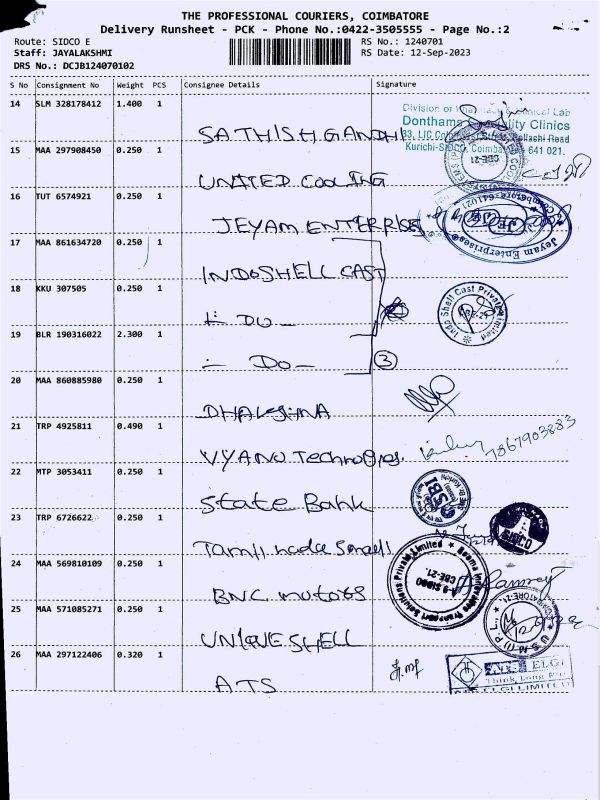 THE PROFESSIONAL COURIERS, COIMBATORE
Delivery Runsheet - PCK - Phone No.:0422-3505555 - Page No.:2
Route: SIDCO E RS No.: 1240701
Staff: JAYALAKSHMI RS Date: 12-Sep-2023
DRS No.: DCJB124070102
S No Consignment No Weight PCS Consignee Details Signature
14 SLM 328178412 1.400 1
SATHISH.GANDHI
Division of
Donthams Speciality Clinics
Kurichi-SIDCO, Coimbatore 641 021.
15 MAA 297908450 0.250 1
UNITED COOLING
CBE-21
16 TUT 6574921 0.250 1
JEYAM ENTERPRISES
Jeyam Enterprises
17 MAA 861634720 0.250 1
INDOSHELL CAST
18 KKU 307505 0.250 1
- DO -
Indo Shell Cast Private Limited
19 BLR 190316022 2.300 1
- DO -
3
20 MAA 860885980 0.250 1
DHAKSHNA
21 TRP 4925811 0.490 1
7867903883
22 MTP 3053411 0.250 1
State Bank
SBI
23 TRP 6726622 0.250 1
24 MAA 569810109 0.250 1
BNC MOTORS
Transport Solutions Private Limited
SIDCO
CBE-21.
25 MAA 571085271 0.250 1
UNIQUE SHELL
26 MAA 297122406 0.320 1
ATS
ELGI
ELGI LIMITED